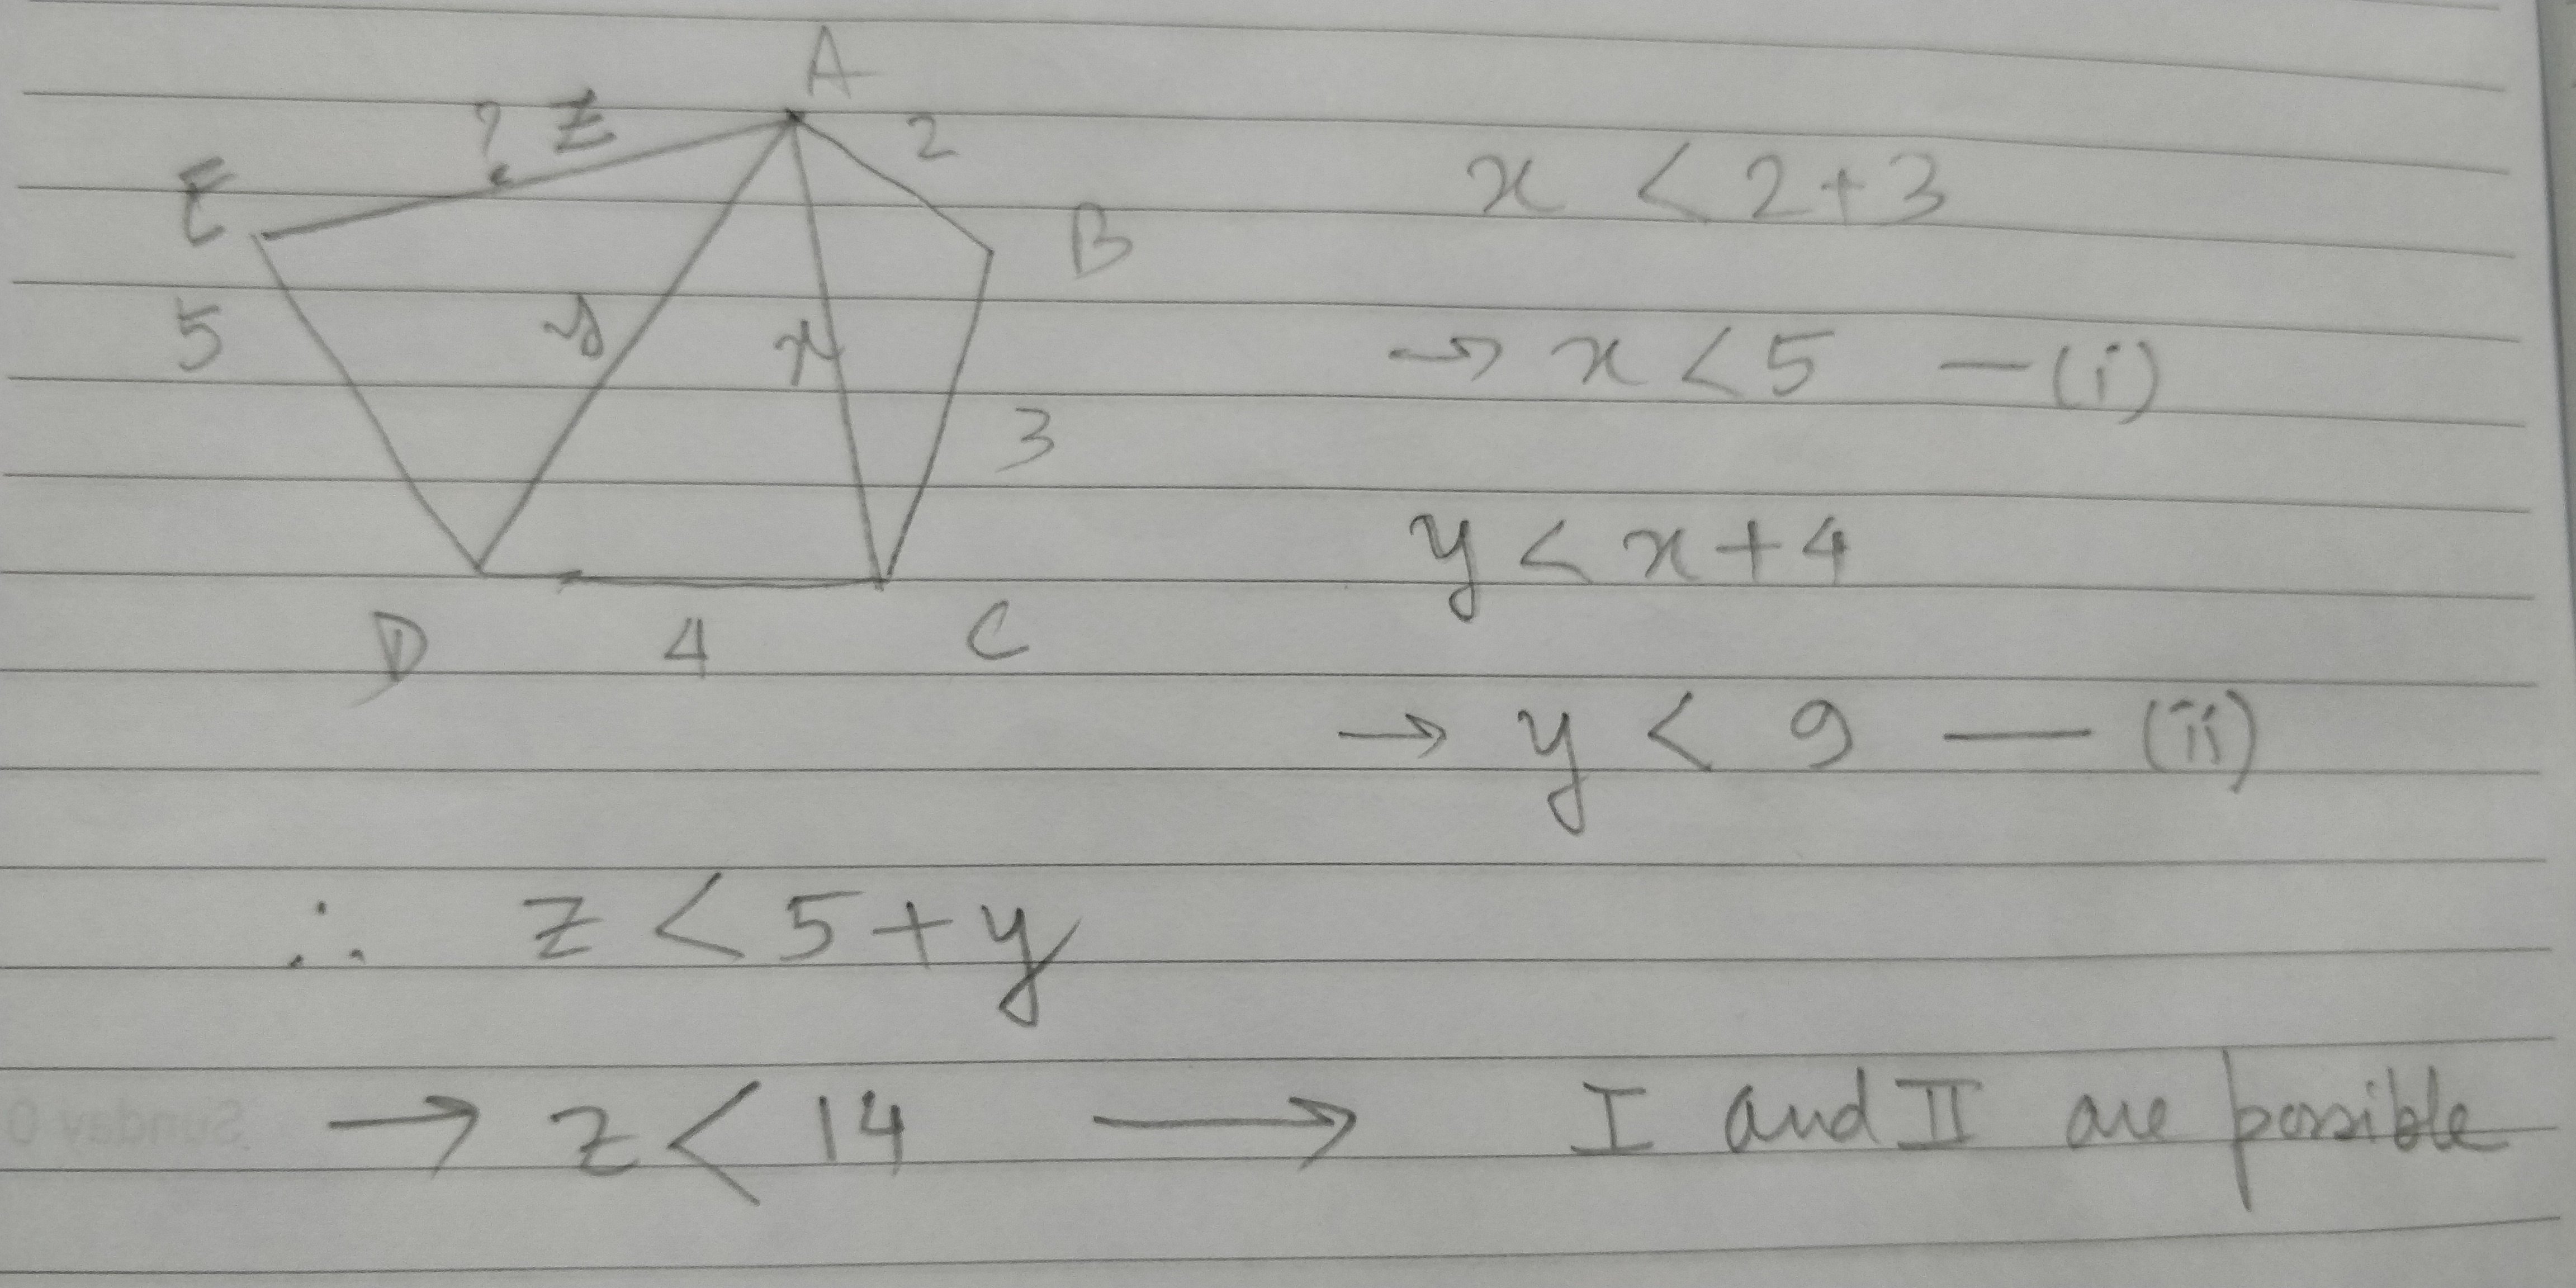 A
? Z
2
E
B
5
y
x
3
D
4
C
x < 2+3
→ x < 5 — (i)
y < x + 4
→ y < 9 — (ii)
∴ z < 5 + y
→ z < 14 → I and II are possible